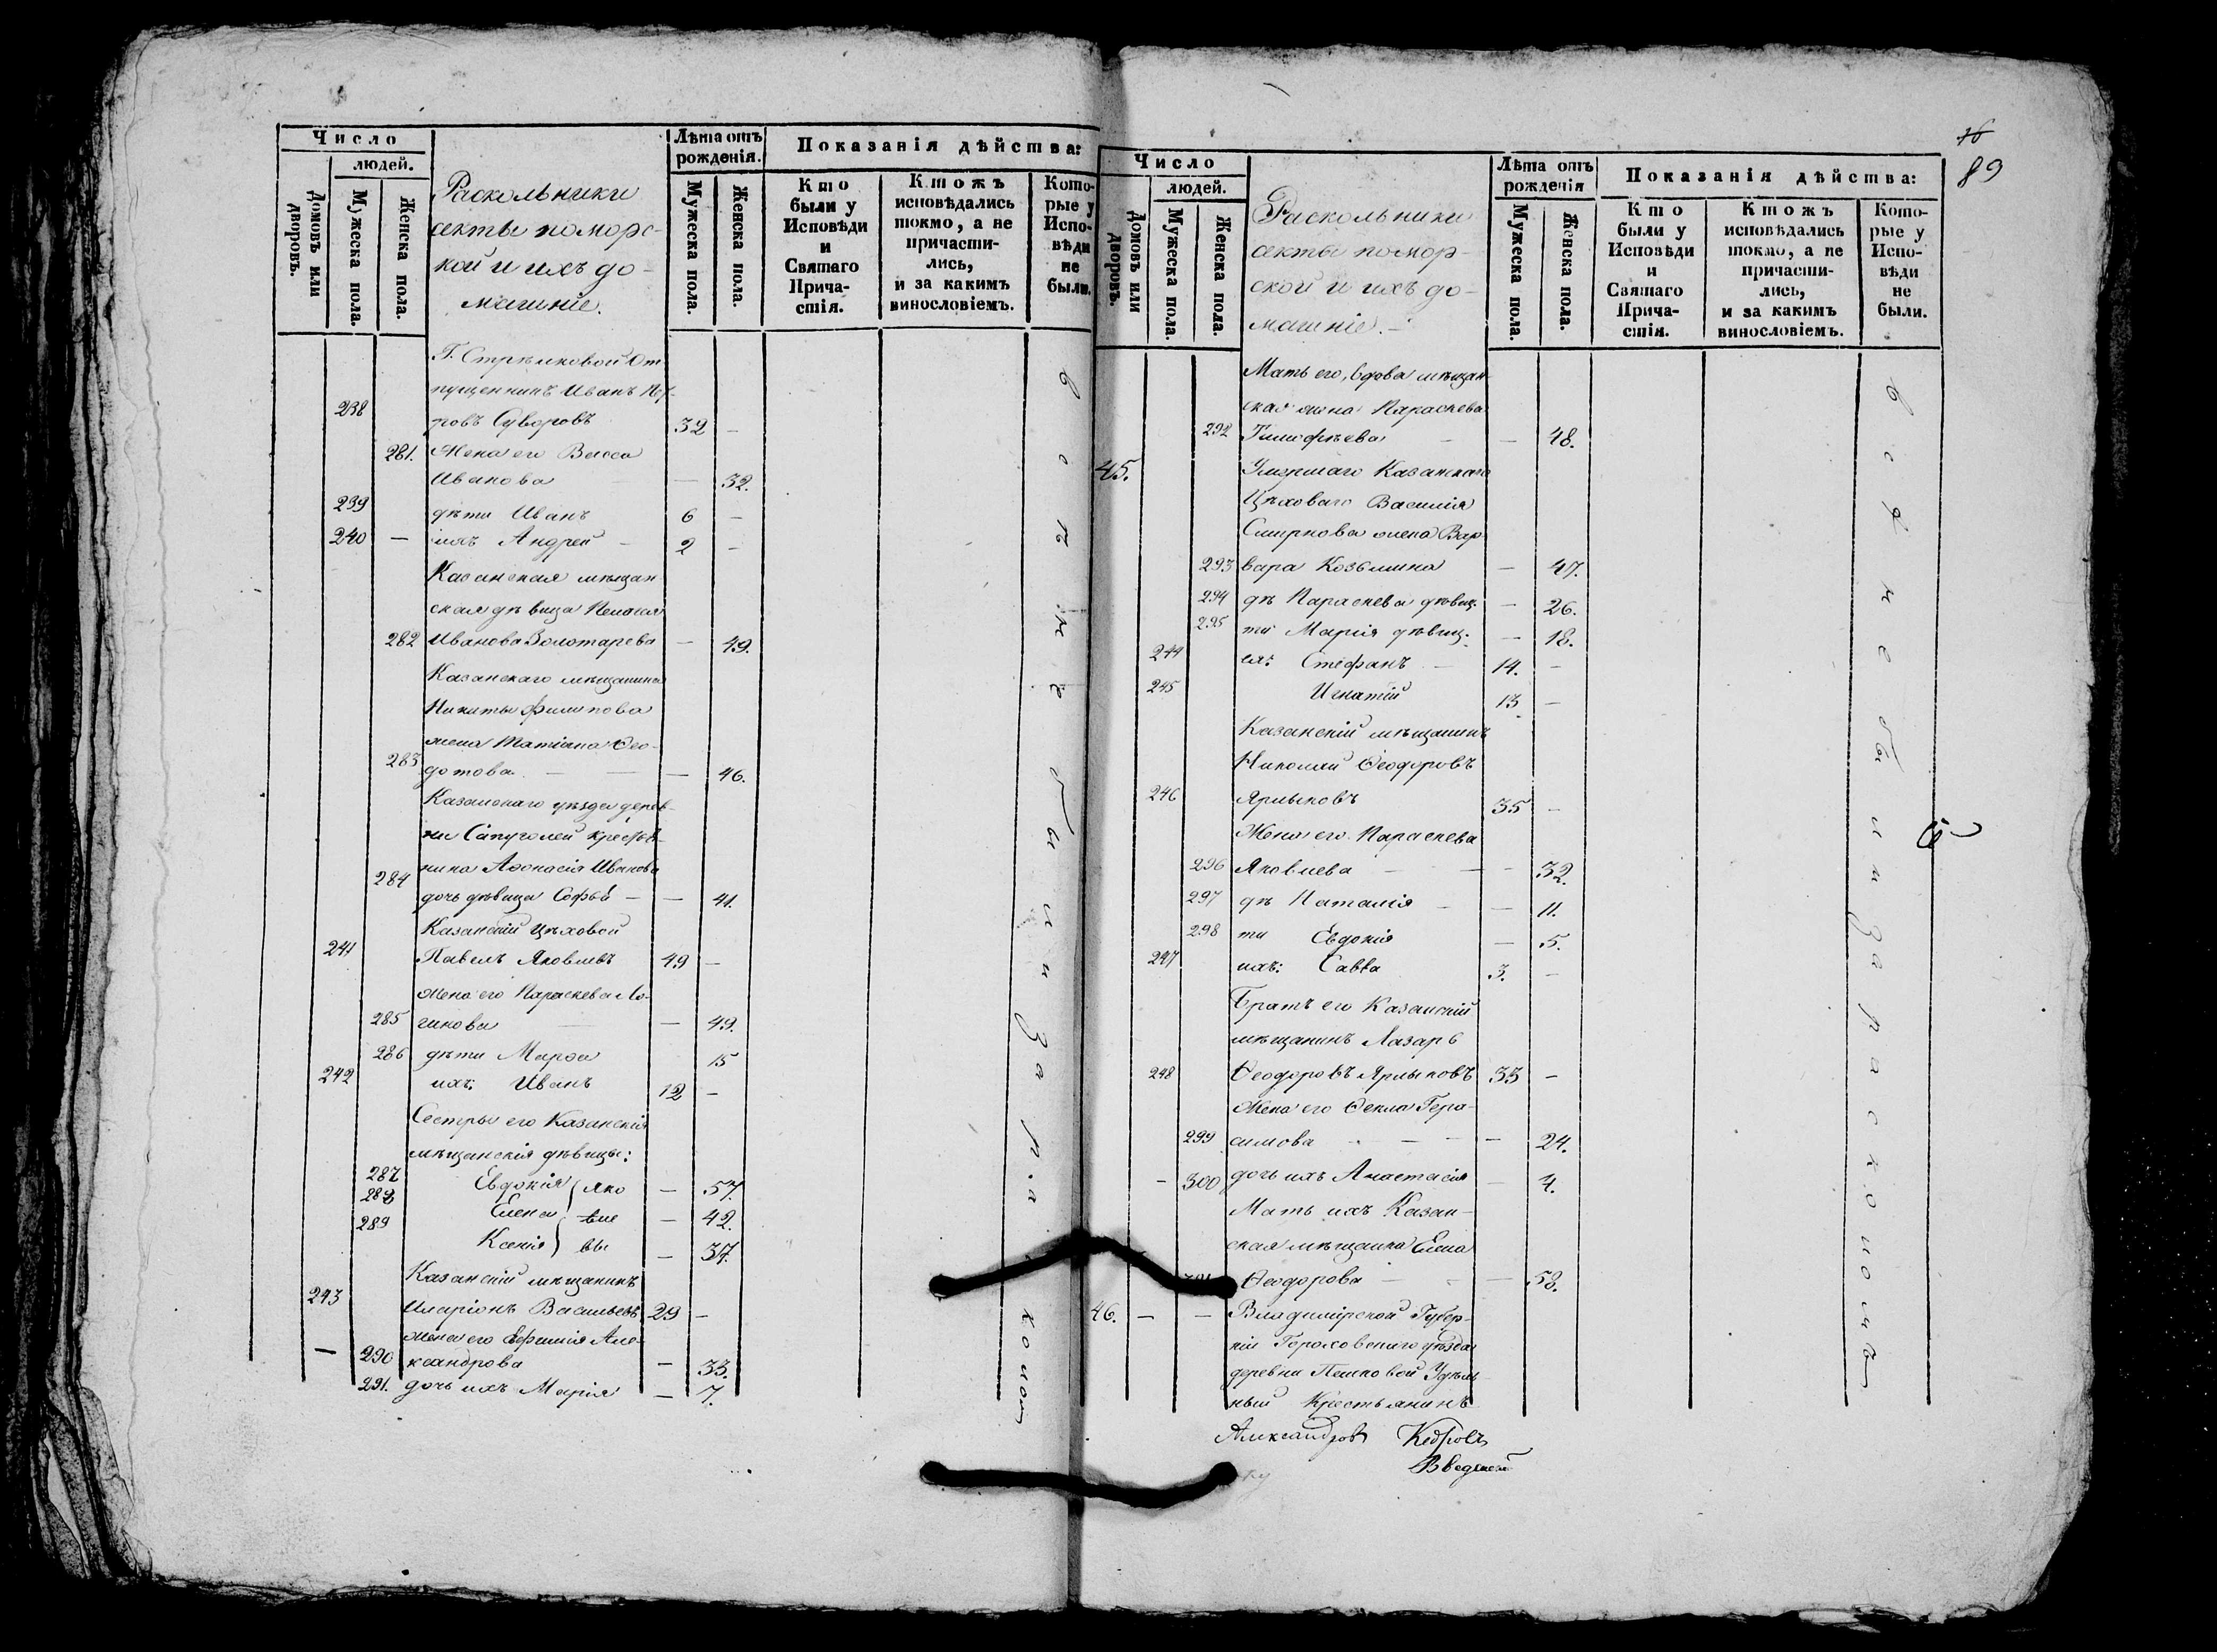 Число
людей.
Домовъ или дворовъ.
Мужеска пола.
Женска пола.
Раскольники
секты поморс-
кой и ихъ до-
машніе.
Лѣта отъ
рожденія.
Мужеска пола.
Женска пола.
Показанія дѣйства:
Кто
были у
Исповѣди
и
Святаго
Прича-
стія.
Ктожъ
исповѣдались
токмо, а не
причасти-
лись,
и за какимъ
винословіемъ.
Кото-
рые у
Испо-
вѣди
не
были.
Г. Стрѣлковой От
пущенникъ Иванъ Пет-
238 ровъ Суворовъ 32 —
281. Жена его Васса
Иванова — 32.
239 дѣти Иванъ 6 —
240 — ихъ Андрей — 2 —
Казанская мѣщан
ская дѣвица Пелагея
282 Иванова Золотарева — 49.
Казанскаго мѣщанина
Никиты Филипова
жена Татіана Ѳео-
283 дотова — — — 46.
Казанскаго уѣзда дерев-
ни Сапуголей крестья-
нина Аѳонасія Иванова
284 дочь дѣвица Софья — — 41.
Казанскій Цѣховой
241 Павелъ Яковлевъ 49 —
жена его Параскева Ло-
285 гинова — — 49.
286 дѣти Марѳа 15
242 ихъ: Иванъ 12 —
Сестры его Казанскія
мѣщанскія дѣвицы:
287 Евдокія Яко — 57.
288 Елена вле — 42.
289 Ксенія вы — 37.
Казанскій мѣщанинъ
243 Иларіонъ Васильевъ 29 —
жена его Евфимія Але-
— 290 ксандрова — 33.
291. дочь ихъ Марія — 7.
вси не были за расколом
76
89
Число
людей.
Домовъ или дворовъ.
Мужеска пола.
Женска пола.
Раскольники
секты помор-
ской и ихъ до-
машніе. —
Лѣта отъ
рожденія
Мужеска пола.
Женска пола.
Показанія дѣйства:
Кто
были у
Исповѣди
и
Святаго
Прича-
стія.
Ктожъ
исповѣдались
токмо, а не
причасти-
лись,
и за какимъ
винословіемъ.
Кото-
рые у
Испо-
вѣди
не
были.
Мать его, вдова мѣщан-
ская жена Параскева
292 Тимофѣева — — 48.
45. Умершаго Казанскаго
Цѣховаго Василія
Смирнова жена Вар
293 вара Козьмина — 47.
294 дѣ Параскева дѣвиц. — 26.
295 ти Марія дѣвиц. — 18.
244 ея: Стефанъ — 14. —
245 Игнатій 13 —
Казанскій мѣщанинъ
Николай Ѳеодоровъ
246 Ярлыковъ 35 —
Жена его Параскева
296 Яковлева — — — 32.
297 дѣ Наталія — — 11.
298 ти Евдокія — 5.
247 ихъ: Савва 3. —
Братъ его Казанскій
мѣщанинъ Лазарь
248 Ѳеодоровъ Ярлыковъ 33 —
Жена его Ѳекла Гера-
299 симова — — — — 24.
— 300 дочь ихъ Анастасія — 4.
Мать ихъ Казан-
ская мѣщанка Елена
Ѳеодорова — — — 58.
46. — — Владимірской Губер-
ніи Гороховскаго уѣзда
деревни Пешковой Удѣль
ный Крестьянинъ
Александровъ Кедровъ
Введенск
вси не были за расколомъ